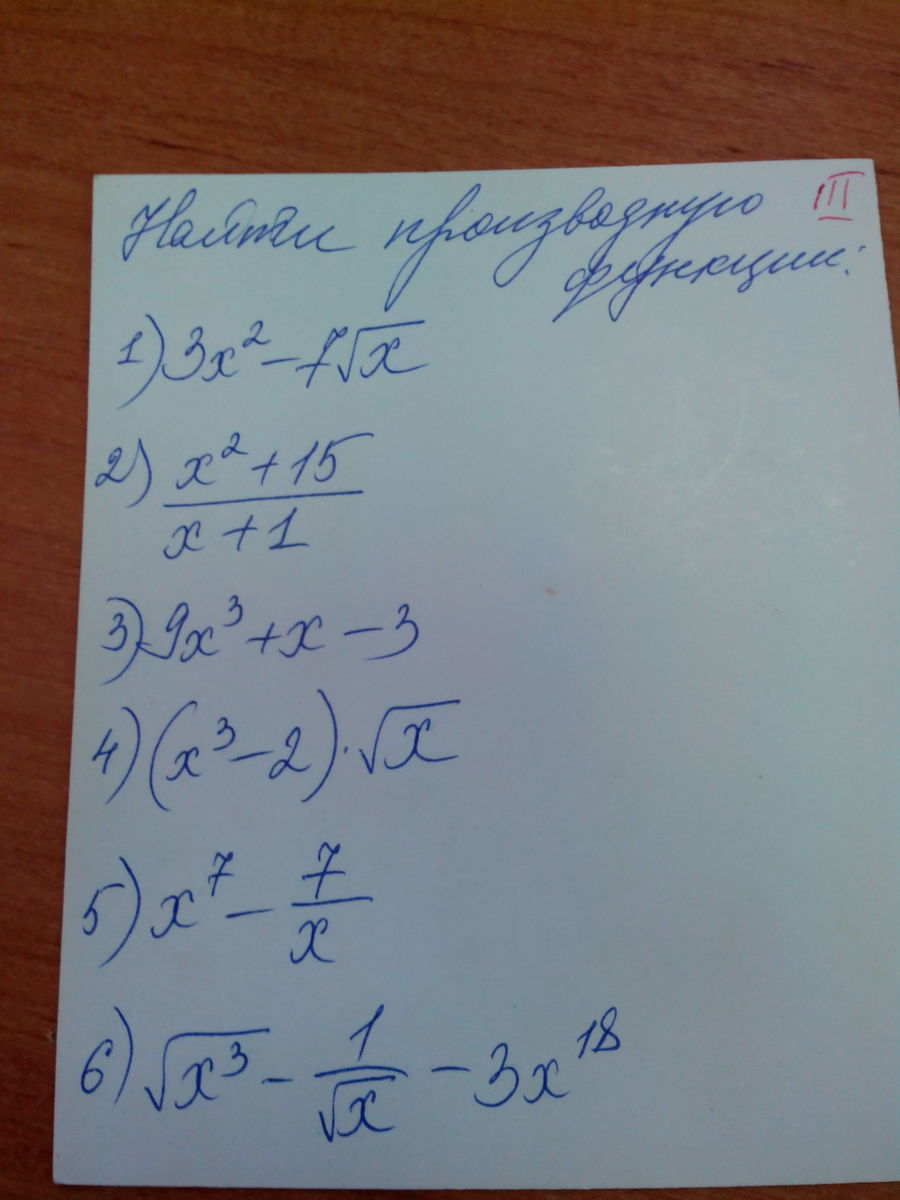 Найти производную III
функции:
1) 3x² − 7√x
2) (x² + 15)/(x + 1)
3) -9x³ + x − 3
4) (x³ − 2) · √x
5) x⁷ − 7/x
6) √x³ − 1/√x − 3x¹⁸